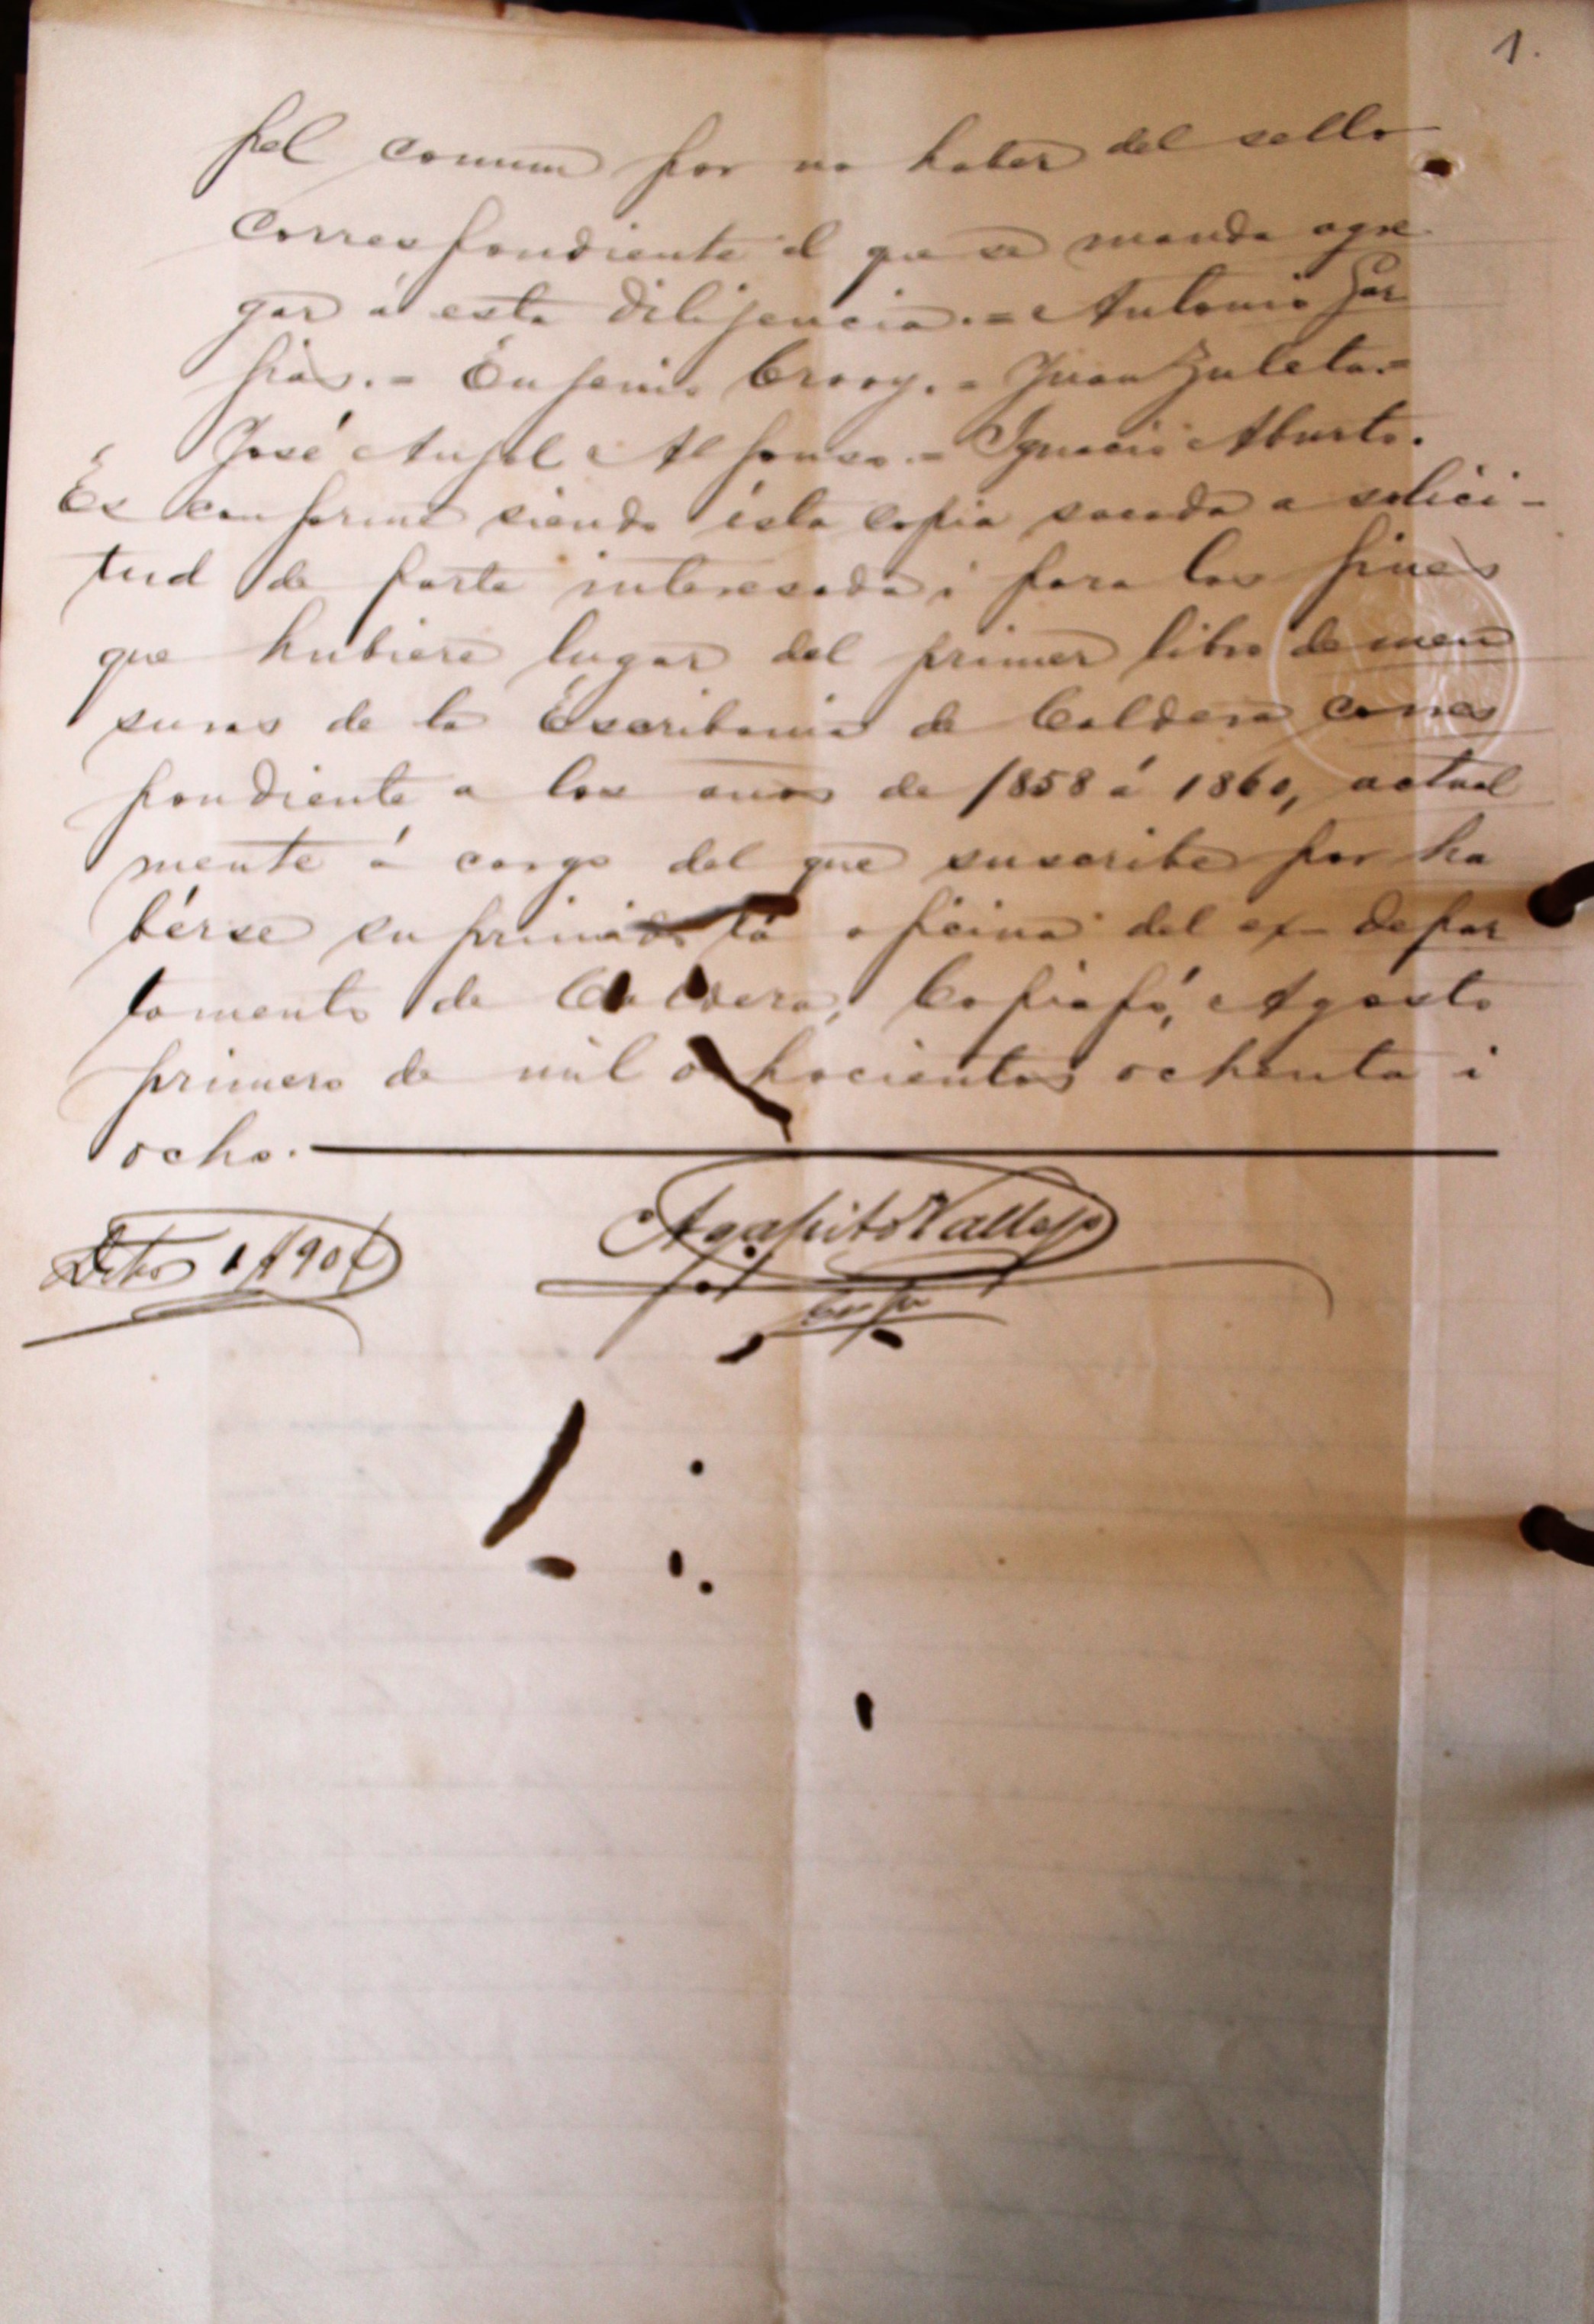 1.
pel comun por no haber del sello
correspondiente el que se manda agre
gar á esta dilijencia.= Antonio Gar
fias.= Eujenio Croog.= Juan Zuleta.=
José Anjel Alfonso.= Ignacio Aburto.
Es conforme siendo ésta copia sacada a solici-
tud de parte interesada i para los fines
que hubiere lugar del primer libro de men
suras de la Escribania de Caldera corres
pondiente a los anos de 1858 á 1860, actual
mente á cargo del que suscribe por ha
bérse suprimido la oficina del ex-depar
tamento de Caldera, Copiapó, Agosto
primero de mil ochocientos ochenta i
ocho.
Agapito Vallejo